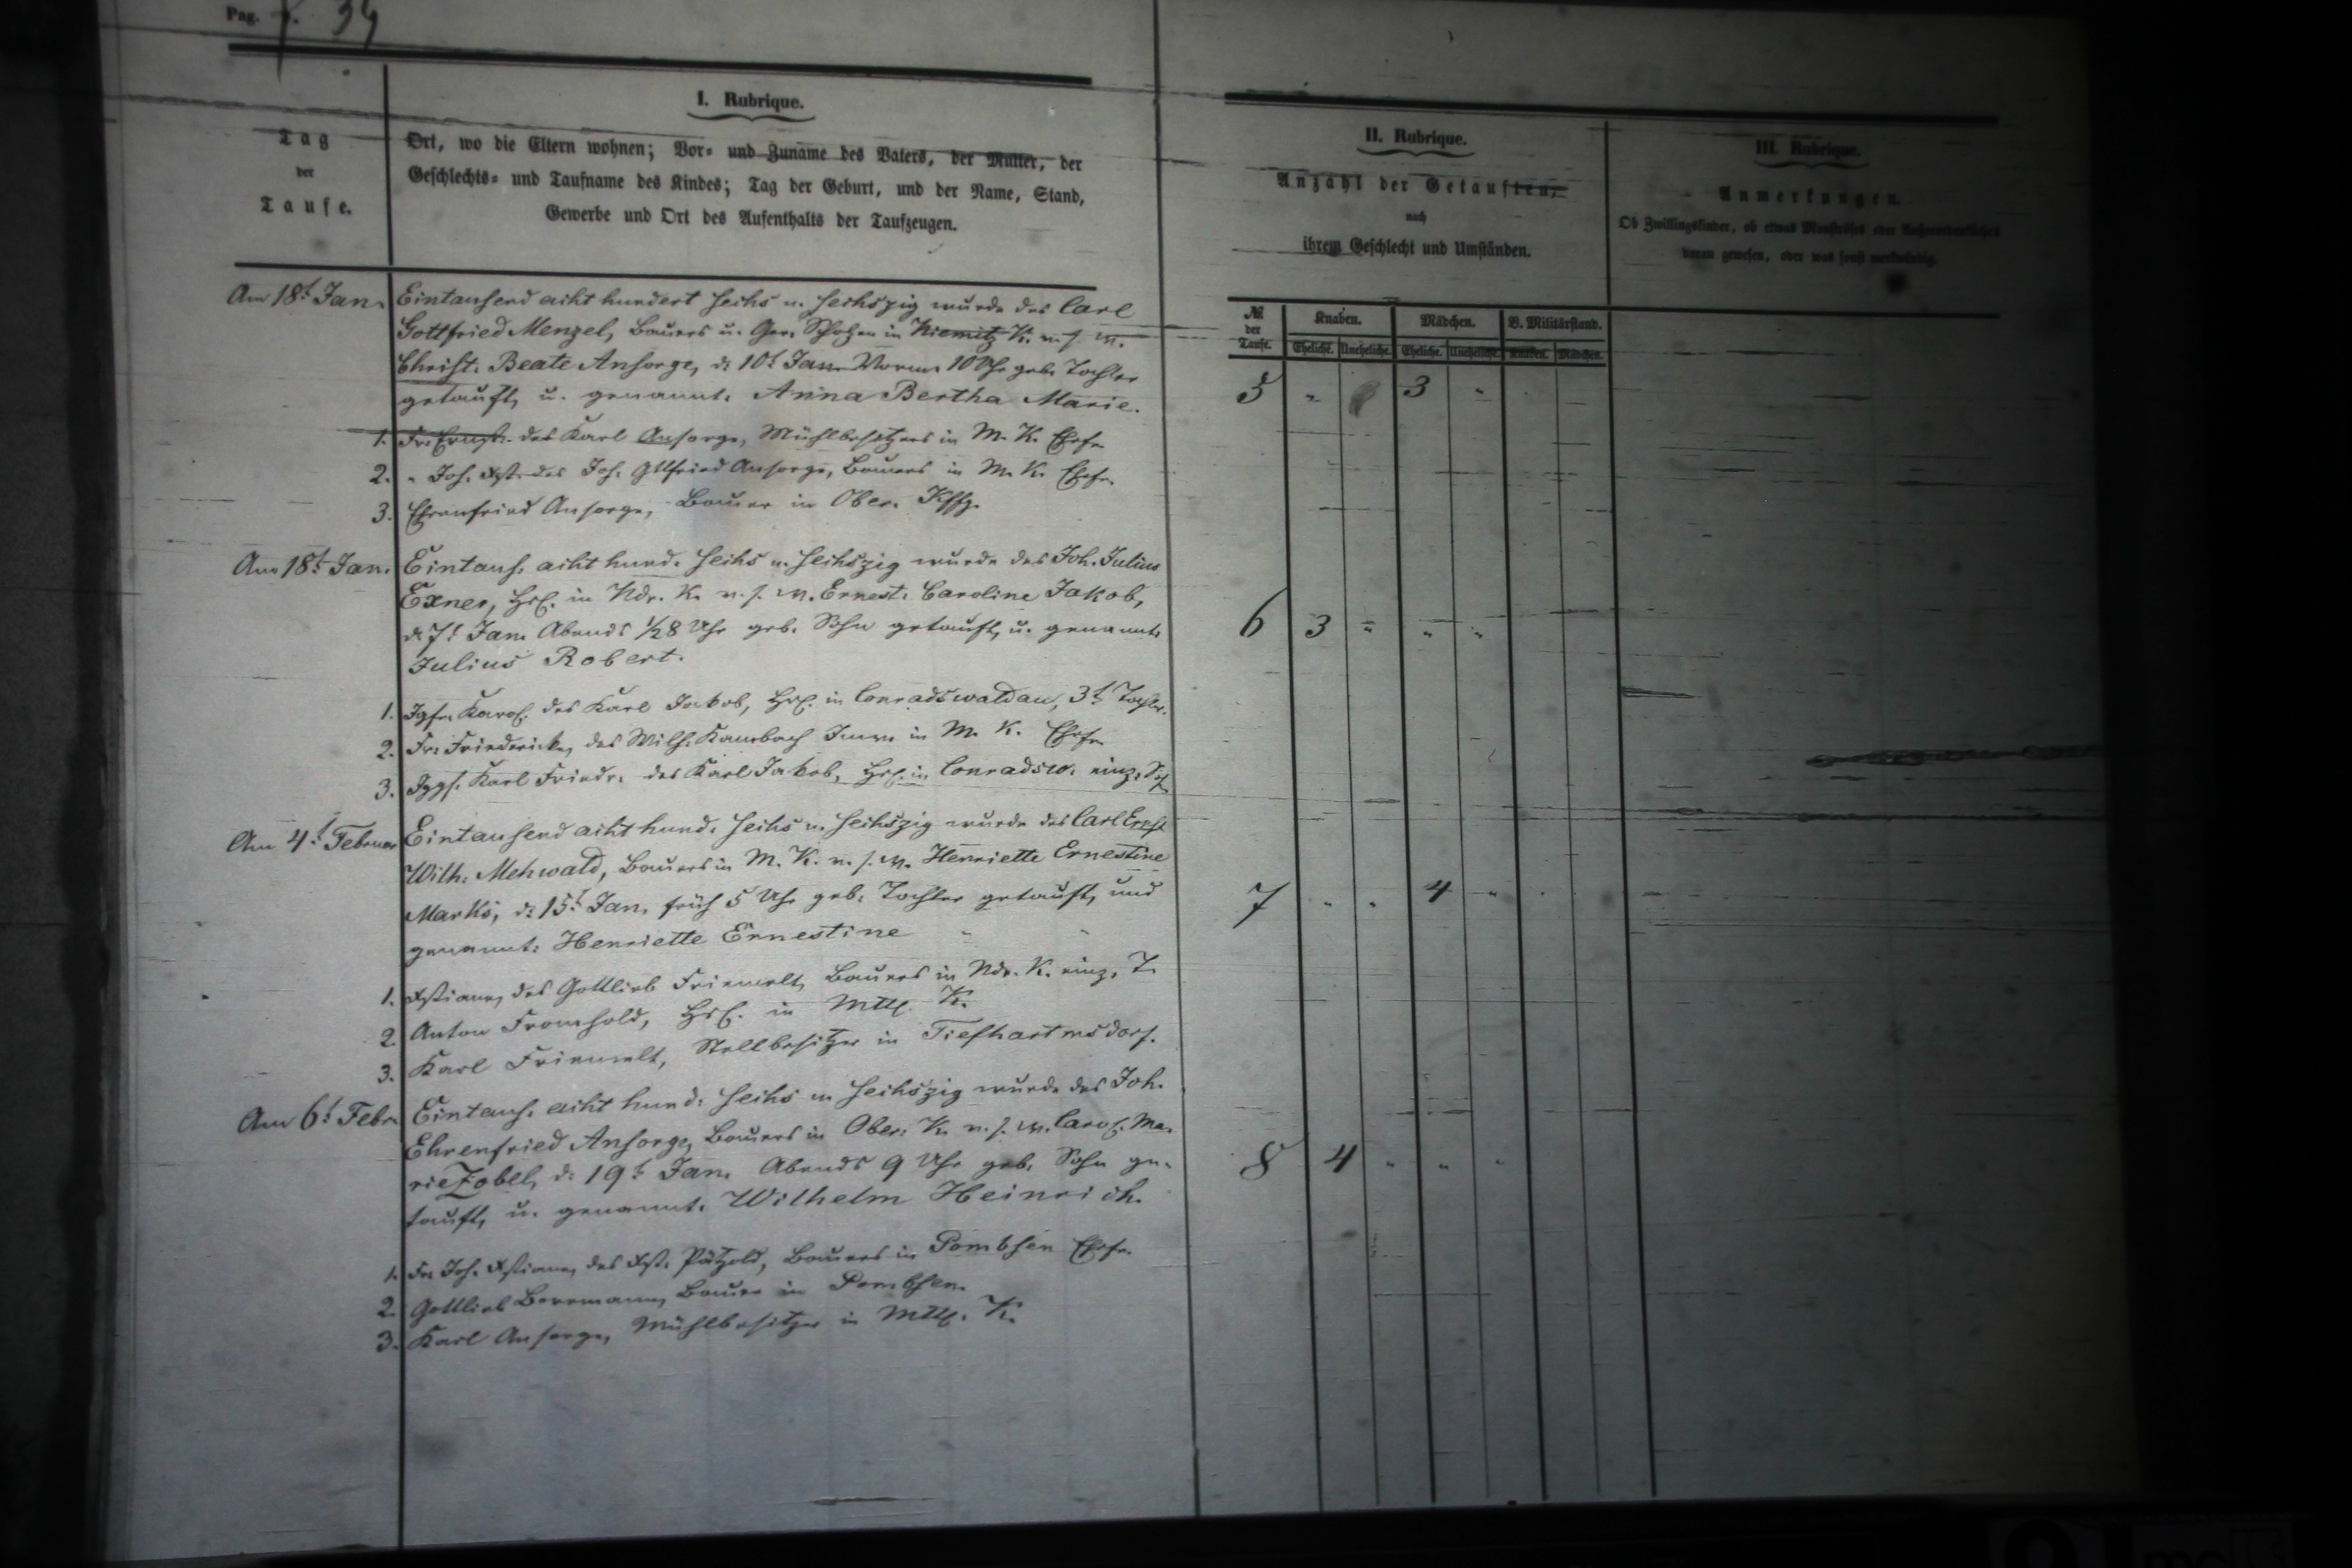 Pag. 34
I. Rubrique.
Tag
der
Taufe.
Ort, wo die Eltern wohnen; Vor- und Zuname des Vaters, der Mutter, der
Geschlechts- und Taufname des Kindes; Tag der Geburt, und der Name, Stand,
Gewerbe und Ort des Aufenthalts der Taufzeugen.
II. Rubrique.
Anzahl der Getauften,
nach
ihrem Geschlecht und Umständen.
III. Rubrique.
Anmerkungen.
Ob Zwillingskinder, ob etwas Monströses oder Außerordentliches
daran gewesen, oder was sonst merkwürdig.
№ der Taufe. Knaben. Mädchen. V. Militärstand.
Eheliche. Uneheliche. Eheliche. Uneheliche. Knaben. Mädchen.
Am 18t Jan. Eintausend acht hundert sechs u. sechszig wurde des Carl
Gottfried Menzel, Bauers u. Ger. Scholzen in Kiemitz K. u. s. W.
Christ. Beate Ansorge, d. 10t Jan. Vorm. 10 Uhr geb. Tochter
getauft, u. genannt. Anna Bertha Marie.
5 " 3 "
1. Fr. Ernst. des Karl Ansorge, Mühlbesitzers in M. K. Ehefr.
2. " Joh. Xst. des Joh. Gttfried Ansorge, Bauers in M. K. Ehefr.
3. Ehrenfried Ansorge, Bauer in Ober.
Am 18t Jan. Eintaus. acht hund. sechs u. sechszig wurde des Joh. Julius
Exner, Hsl. in Ndr. K. u. s. W. Ernest. Caroline Jakob,
d. 7t Jan. Abends 1/28 Uhr geb. Sohn getauft, u. genannt.
Julius Robert.
6 3 " " "
1. Jgfr. Karol. des Karl Jakob, Hsl. in Conradswaldau, 3t Tochter.
2. Fr. Friedericke, des Wilh. Kambach Inw. in M. K. Ehefr.
3. Jggs. Karl Friedr. des Karl Jakob, Hsl. in Conradsw. einz. S.
Am 4t Februar Eintausend acht hund. sechs u. sechszig wurde des Carl Ernst
Wilh. Mehwald, Bauers in M. K. u. s. W. Henriette Ernestine
Marks, d. 15t Jan. früh 5 Uhr geb. Tochter getauft, und
genannt: Henriette Ernestine
7 " " 4 "
1. Xstiane, des Gottlieb Friemelt, Bauers in Ndr. K. einz. T.
2. Anton Fromhold, Hsl. in Mttl. K.
3. Karl Friemelt, Stellbesitzer in Tiefhartmsdorf.
Am 6t Febr. Eintaus. acht hund. sechs u. sechszig wurde des Joh.
Ehrenfried Ansorge, Bauers in Ober. K. u. s. W. Carol. Ma.
rie Zobel, d. 19t Jan. Abends 9 Uhr geb. Sohn ge.
tauft, u. genannt. Wilhelm Heinrich.
8 4 " " "
1. Fr. Joh. Xstiane, des Xst. Pätzold, Bauers in Pombsen Ehefr.
2. Gottlieb Bormann, Bauer in Pombsen.
3. Karl Ansorge, Mühlbesitzer in Mttl. K.